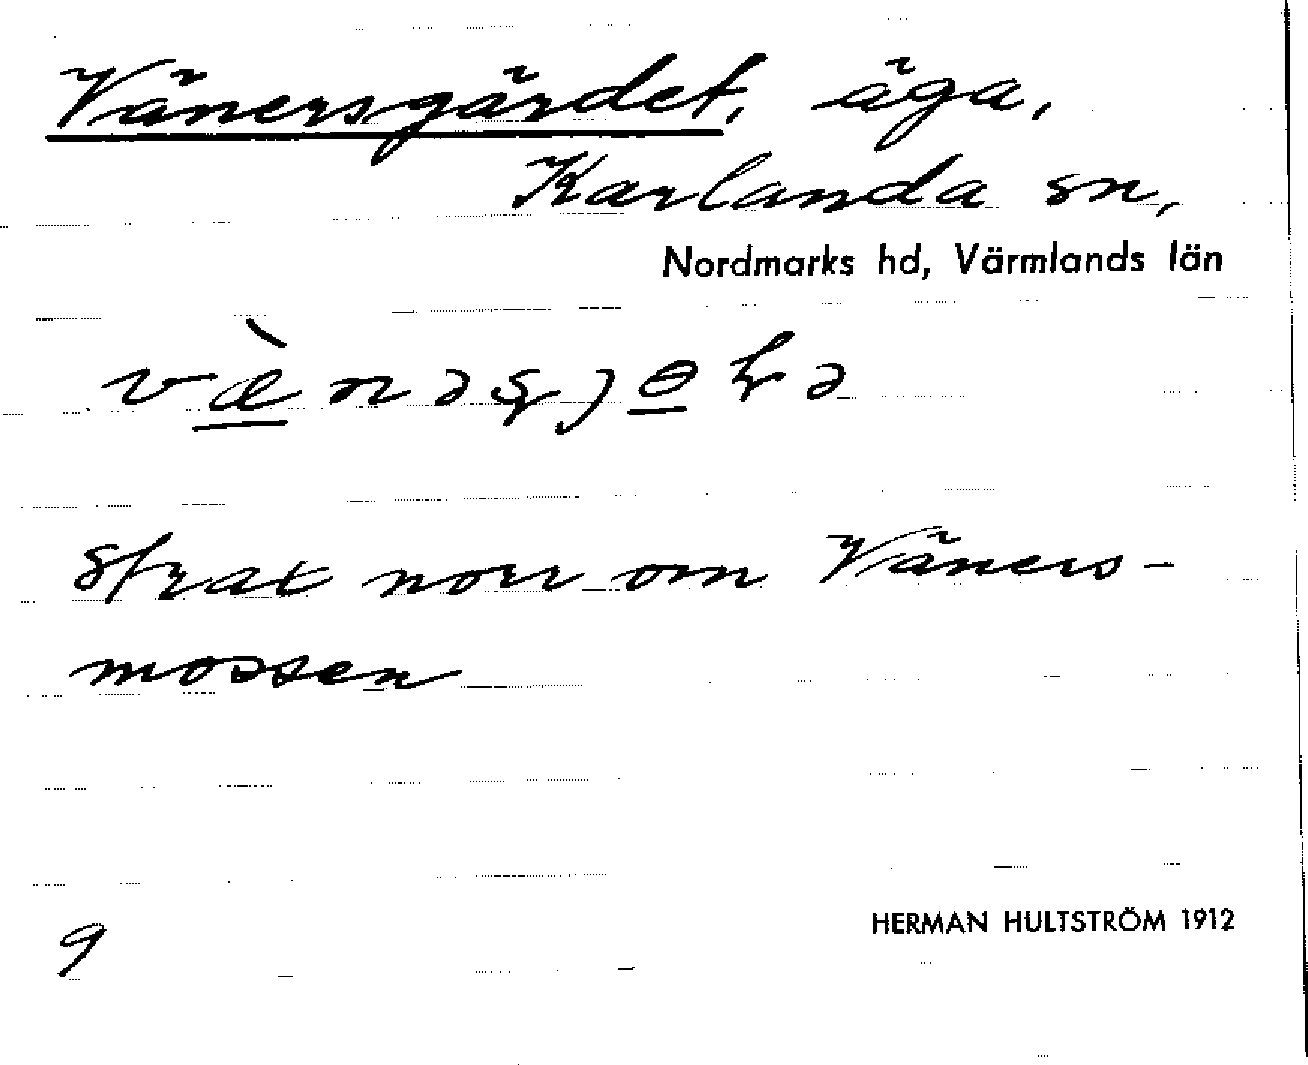 Vänersgärdet, äga,
Karlanda sn,
Nordmarks hd, Värmlands län
strax norr om Väners-
mossen
9
HERMAN HULTSTRÖM 1912